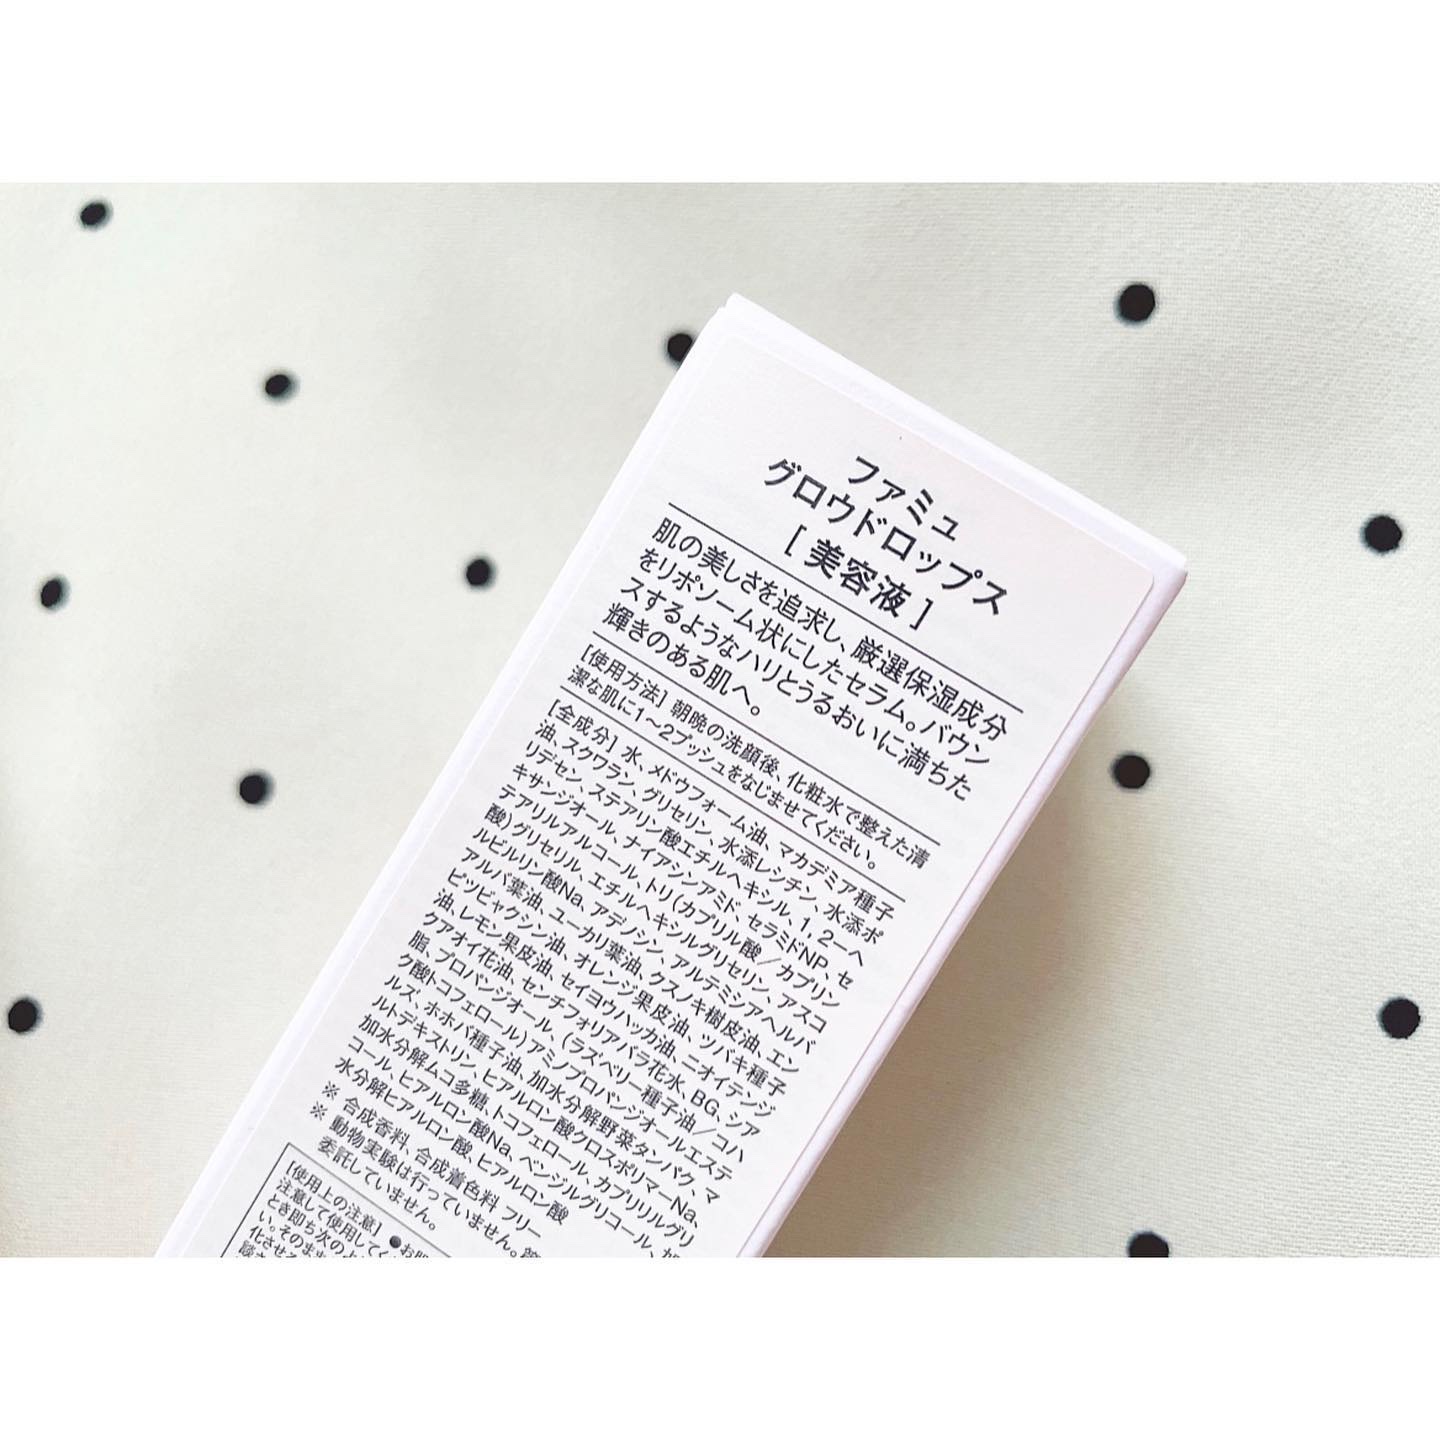 ファミュ
グロウドロップス
[ 美容液 ]
肌の美しさを追求し、厳選保湿成分
をリポソーム状にしたセラム。バウン
スするようなハリとうるおいに満ちた
輝きのある肌へ。
[使用方法] 朝晩の洗顔後、化粧水で整えた清
潔な肌に1〜2プッシュをなじませてください。
[全成分] 水、メドウフォーム油、マカデミア種子
油、スクワラン、グリセリン、水添レシチン、水添ポ
リデセン、ステアリン酸エチルヘキシル、1，2－ヘ
キサンジオール、ナイアシンアミド、セラミドNP、セ
テアリルアルコール、トリ(カプリル酸／カプリン
酸)グリセリル、エチルヘキシルグリセリン、アスコ
ルビルリン酸Na、アデノシン、アルテミシアヘルバ
アルバ葉油、ユーカリ葉油、クスノキ樹皮油、エン
ピツビャクシン油、オレンジ果皮油、ツバキ種子
油、レモン果皮油、セイヨウハッカ油、ニオイテンジ
クアオイ花油、センチフォリアバラ花水、BG、シア
脂、プロパンジオール、(ラズベリー種子油／コハ
ク酸トコフェロール)アミノプロパンジオールエステ
ルズ、ホホバ種子油、加水分解野菜タンパク、マ
ルトデキストリン、ヒアルロン酸クロスポリマーNa、
加水分解ムコ多糖、トコフェロール、カプリリルグリ
コール、ヒアルロン酸Na、ベンジルグリコール、加
水分解ヒアルロン酸、ヒアルロン酸
※ 合成香料、合成着色料 フリー
※ 動物実験は行っていません。第
委託していません。
[使用上の注意] ●お肌
注意して使用してく
とき即ち次の
い。そのまま
化させる